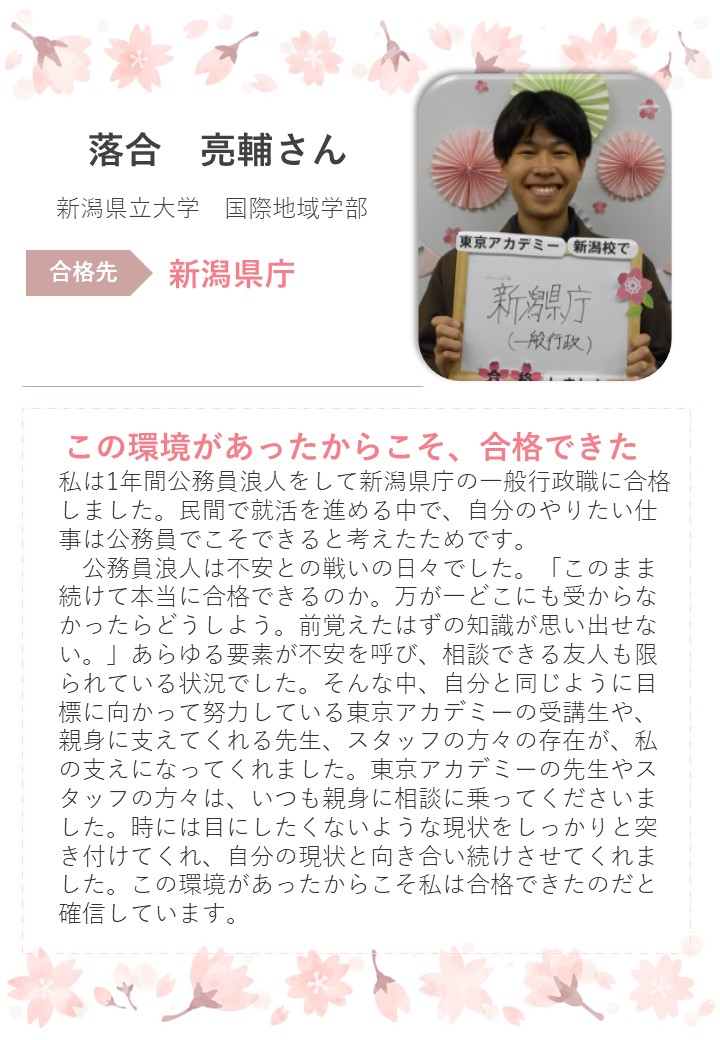 落合　亮輔さん
新潟県立大学　国際地域学部
合格先
新潟県庁
東京アカデミー 新潟校で
新潟県庁
(一般行政)
合格しました
この環境があったからこそ、合格できた
私は1年間公務員浪人をして新潟県庁の一般行政職に合格
しました。民間で就活を進める中で、自分のやりたい仕
事は公務員でこそできると考えたためです。
　公務員浪人は不安との戦いの日々でした。「このまま
続けて本当に合格できるのか。万が一どこにも受からな
かったらどうしよう。前覚えたはずの知識が思い出せな
い。」あらゆる要素が不安を呼び、相談できる友人も限
られている状況でした。そんな中、自分と同じように目
標に向かって努力している東京アカデミーの受講生や、
親身に支えてくれる先生、スタッフの方々の存在が、私
の支えになってくれました。東京アカデミーの先生やス
タッフの方々は、いつも親身に相談に乗ってくださいま
した。時には目にしたくないような現状をしっかりと突
き付けてくれ、自分の現状と向き合い続けさせてくれま
した。この環境があったからこそ私は合格できたのだと
確信しています。